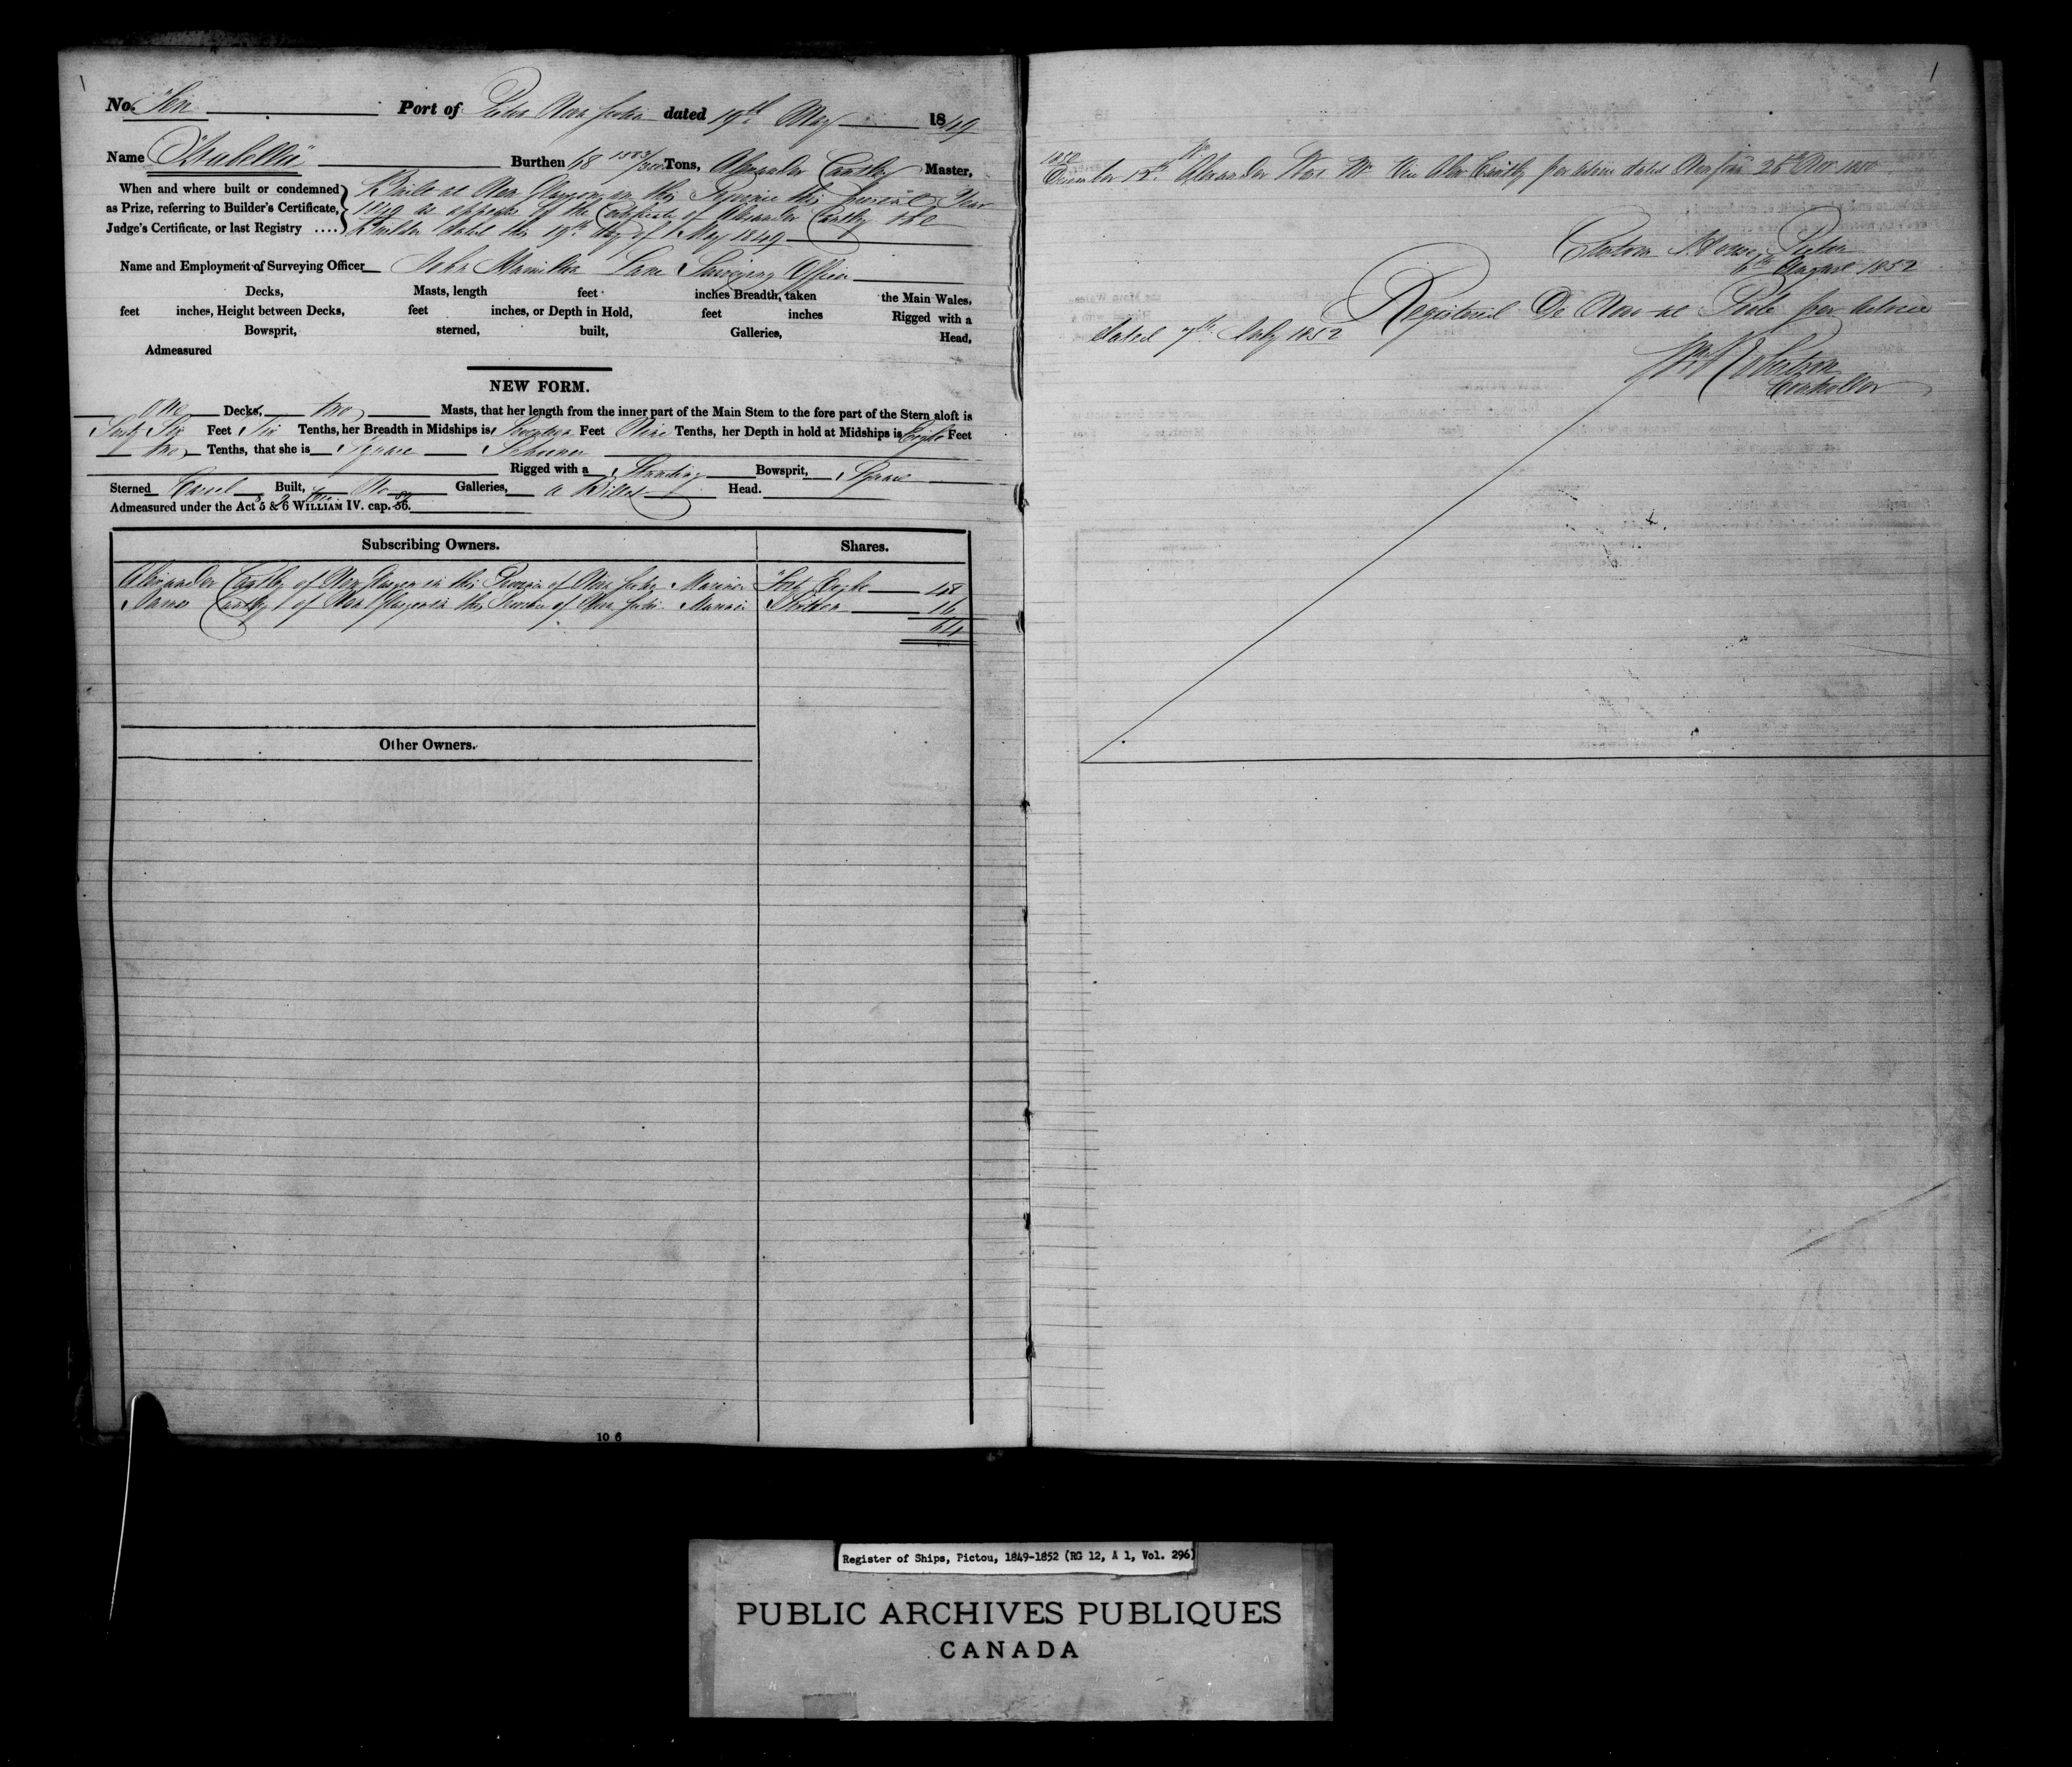 No. Ten Port of Pictou Nova Scotia dated 19th May 1849
Name "Isabella" Burthen 48 1583/3500 Tons, Alexander Cantley Master,
When and where built or condemned
as Prize, referring to Builder's Certificate,
Judge's Certificate, or last Registry ....
Built at New Glasgow in this Province this present Year
1849 as appears by the Certificate of Alexander Cantley the
Builder dated this 19th day of May 1849
Name and Employment of Surveying Officer John Hamilton Lane Surveying Officer
Decks, Masts, length feet inches Breadth, taken the Main Wales,
feet inches, Height between Decks, feet inches, or Depth in Hold, feet inches Rigged with a
Bowsprit, sterned, built, Galleries, Head,
Admeasured
NEW FORM.
One Decks, two Masts, that her length from the inner part of the Main Stem to the fore part of the Stern aloft is
Sixty Six Feet Six Tenths, her Breadth in Midships is Seventeen Feet Nine Tenths, her Depth in hold at Midships is Eight Feet
two Tenths, that she is Square Schooner
Rigged with a Standing Bowsprit, Square
Sterned Carvel Built, No Galleries, a Billet Head.
Admeasured under the Act 5 & 6 WILLIAM IV. cap. 56.
Subscribing Owners. Shares.
Alexander Cantley of New Glasgow in this Province of Nova Scotia Mariner Forty Eight 48
James Cantley of New Glasgow in this Province of Nova Scotia Mariner Sixteen 16
64
Other Owners.
10 6
1
1850
December 12th Alexander Master Alexr Cantley per advice dated 26th Decr 1850
Custom House Pictou
6th August 1852
Registered De Novo at Poole per advice
dated 7th July 1852
Wm Robertson
Controller
Register of Ships, Pictou, 1849-1852 (RG 12, A 1, Vol. 296)
PUBLIC ARCHIVES PUBLIQUES
CANADA